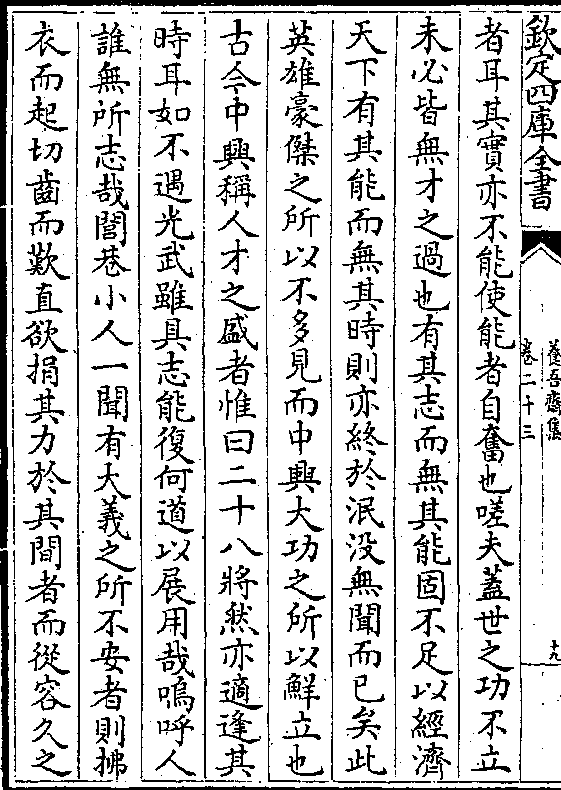 欽定四庫全書
養吾齋集
卷二十三
十九
者耳其實亦不能使能者自奮也嗟夫蓋世之功不立
未必皆無才之過也有其志而無其能固不足以經濟
天下有其能而無其時則亦終於泯没無聞而已矣此
英雄豪傑之所以不多見而中興大功之所以鮮立也
古今中興稱人才之盛者惟曰二十八將然亦適逢其
時耳如不遇光武雖具志能復何道以展用哉嗚呼人
誰無所志哉閭巷小人一聞有大義之所不安者則拂
衣而起切齒而歎直欲捐其力於其間者而從容久之